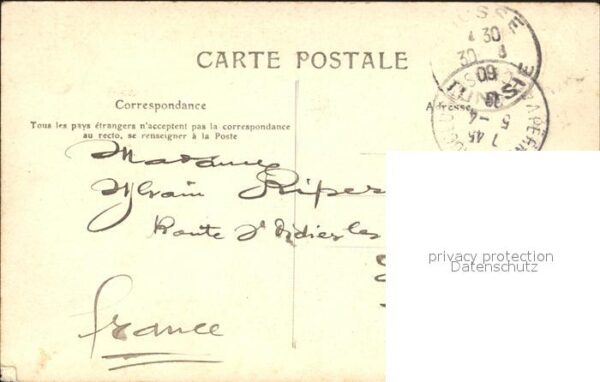 CARTE POSTALE
Correspondance
Tous les pays étrangers n'acceptent pas la correspondance
au recto, se renseigner à la Poste
Adresse
30
30
09
5 -4
7 45
Madame
Sylvain Riper
Route St Didier les
France
privacy protection
Datenschutz